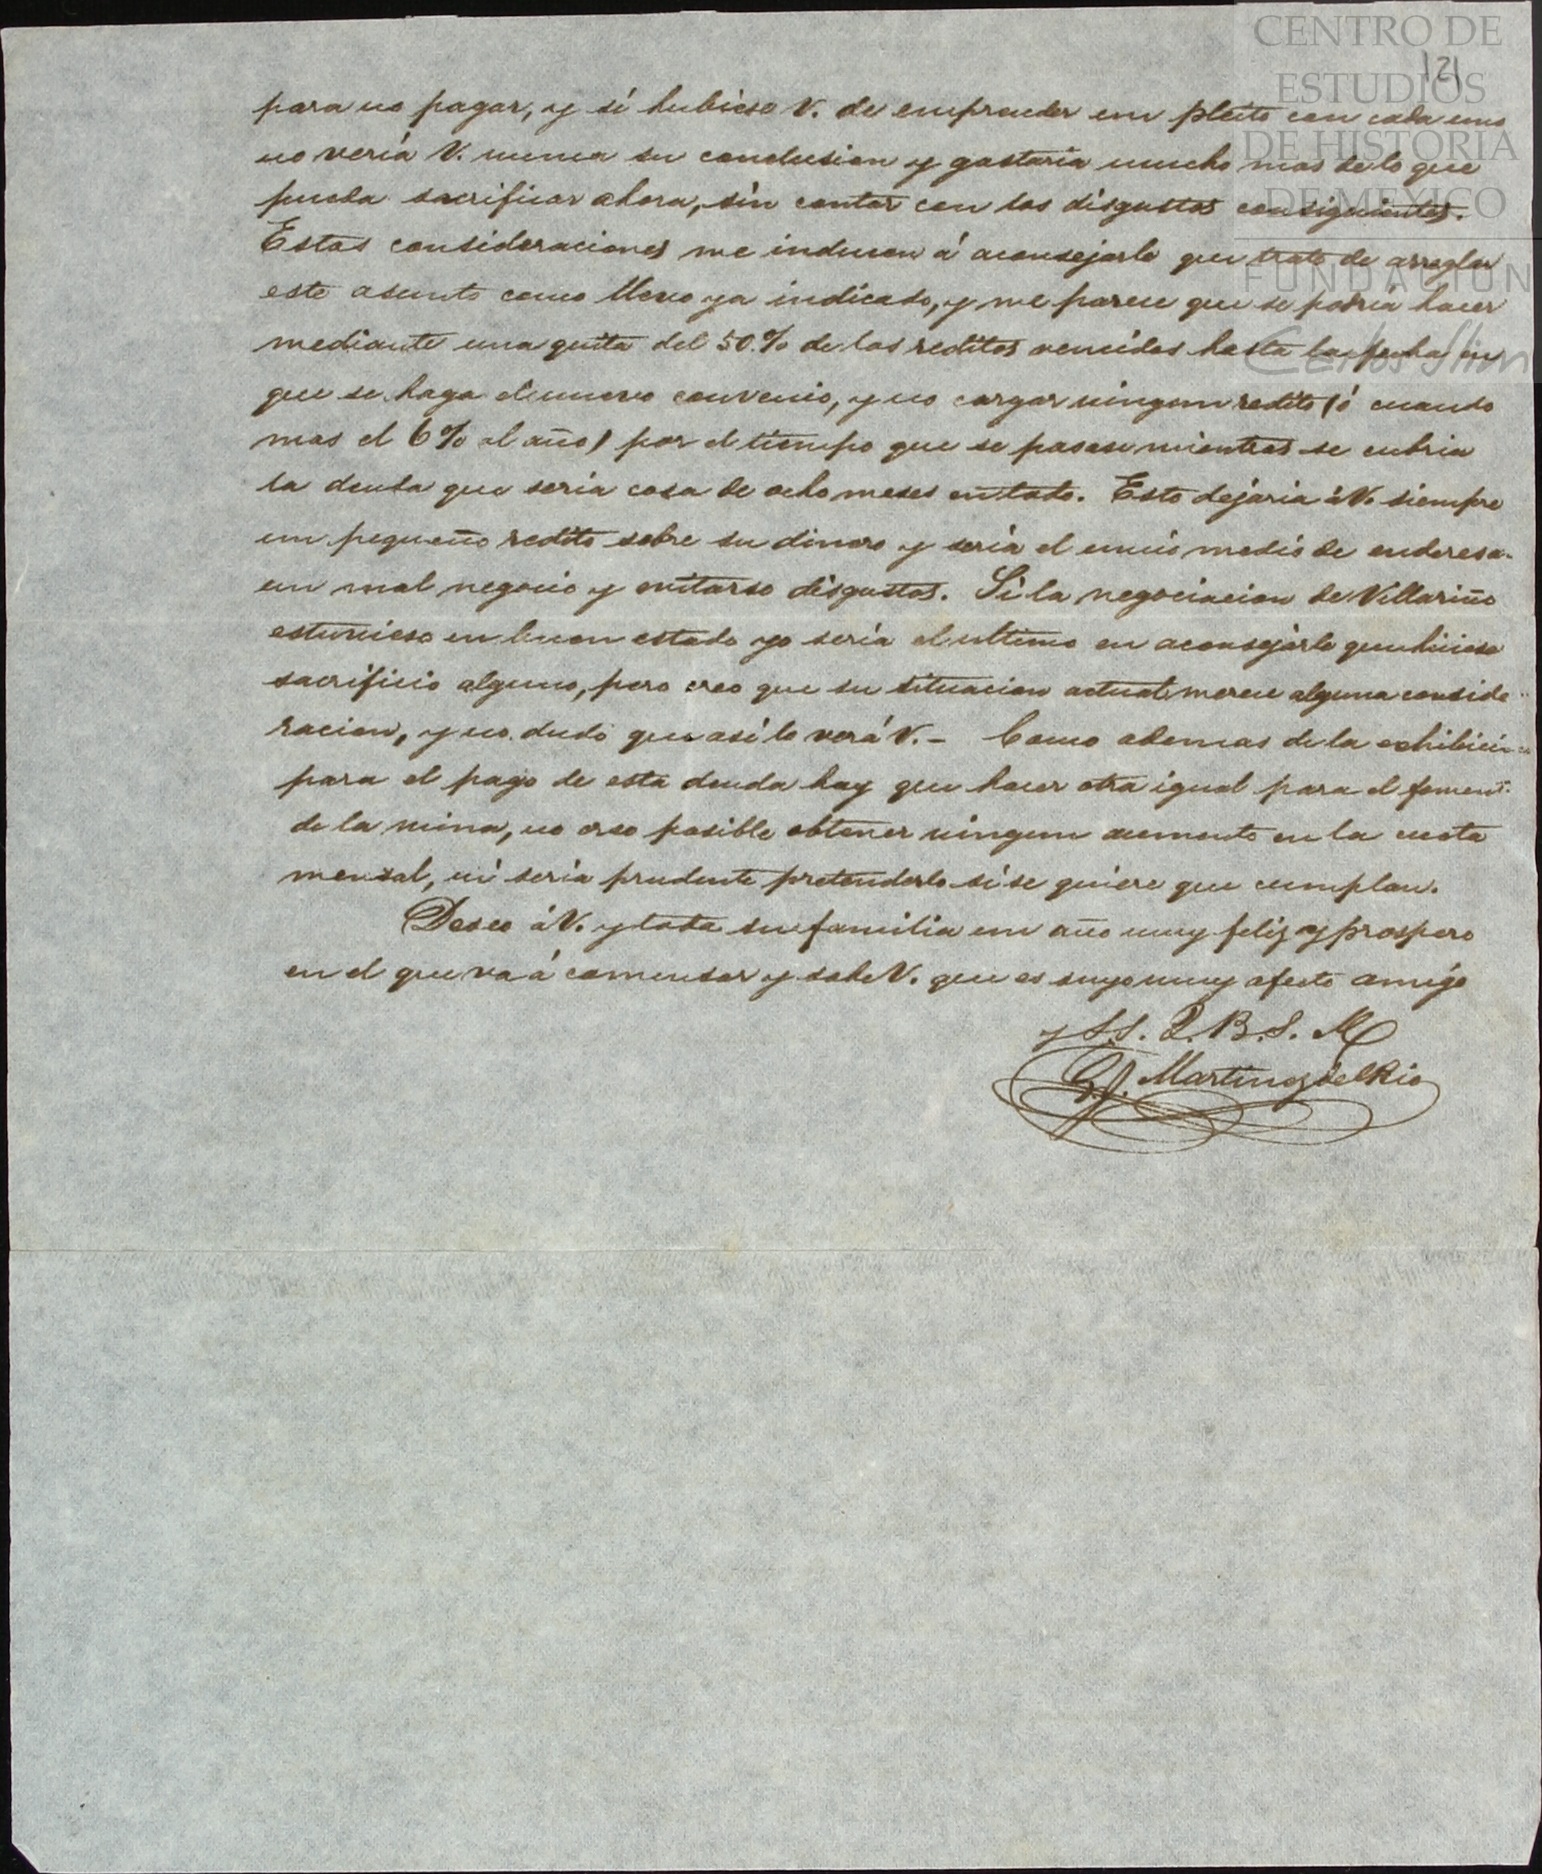 CENTRO DE
ESTUDIOS
DE HISTORIA
DE MÉXICO
FUNDACIÓN
Carlos Slim
121
para no pagar, y sí hubiese V. de emprender un pleito con cada uno
no vería V. nunca su conclusion y gastaria mucho mas de lo que
pueda sacrificar ahora, sín contar con los disgustos consiguientes.
Estas consideraciones me inducen á aconsejarle que trate de arreglar
este asunto como llevo ya indicado, y me parece que se podría hacer
mediante una quita del 50.% de los reditos vencidos hasta la fecha en
que se haga el nuevo convenio, y no cargar ningun redito (ó cuando
mas el 6% al año) por el tiempo que se pasase mientras se cubria
la deuda que sería cosa de ocho meses en todo. Esto dejaria á V. siempre
un pequeño redito sobre su dinero y sería el unico medio de enderesar
un mal negocio y evitarse disgustos. Si la negociacion de Villariño
estuviese en buen estado yo sería el ultimo en aconsejarle que hiciese
sacrificio alguno, pero creo que su situacion actual merece alguna conside
racion, y no dudo que asi lo verá V. – Como ademas de la exhibicion
para el pago de esta deuda hay que hacer otra igual para el foment
de la mina, no creo posible obtener ningun aumento en la cuota
mensal, ni sería prudente pretenderlo sí se quiere que cumplan.
Deseo á V. y toda su familia un año muy feliz y prospero
en el que va á comensar y sabe V. que es suyo muy afecto amigo
y S.S. Q.B.S.M
Martinez del Rio